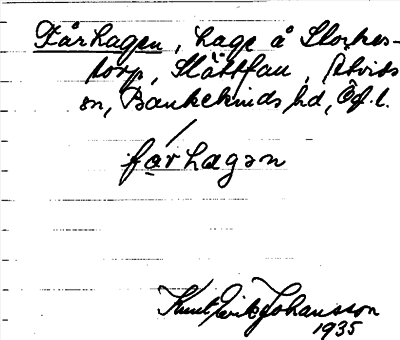 Fårhagen, hage å Storkes-
torp, Slättfau, Åtvids
sn, Bankekinds hd, Ög. l.
fárhagan
Knut Erik Johansson
1935